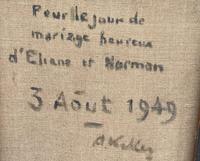 Pour le jour de
mariage heureux
d'Eliane et Norman
3 Août 1949